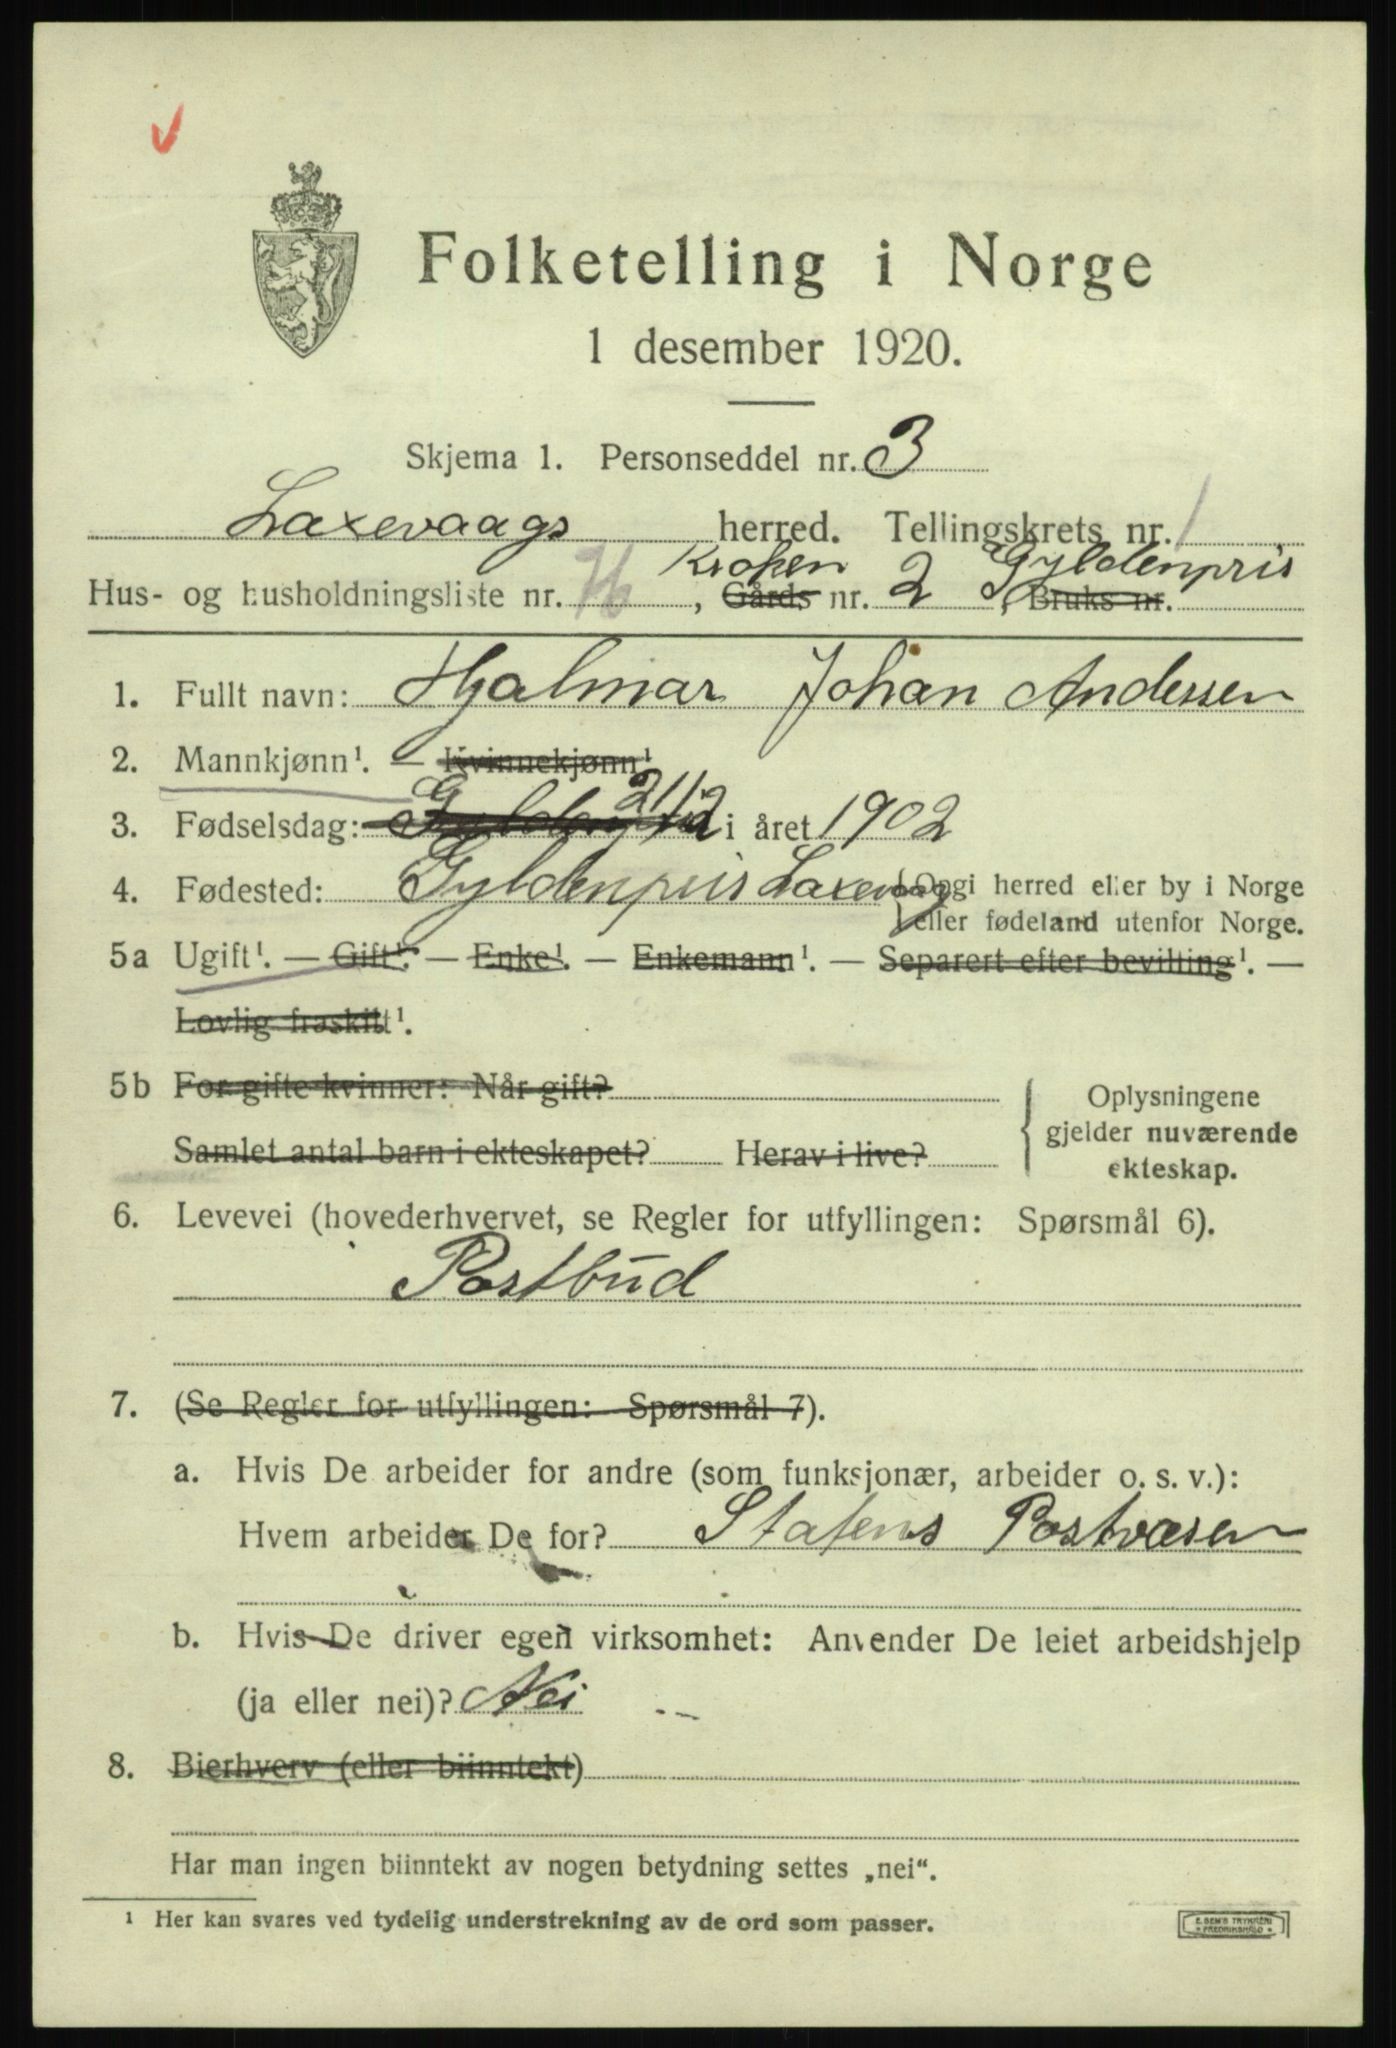 Folketelling i Norge
1 desember 1920.
Skjema 1. Personseddel nr. 3
Laxevaags herred. Tellingskrets nr. 1
Kroken Gyldenpris
Hus- og husholdningsliste nr. 76, Gårds nr. 2, Bruks nr.
1. Fullt navn: Hjalmar Johan Andersen
2. Mannkjønn¹. — Kvinnekjønn¹
3. Fødselsdag: 21/12 i året 1902
4. Fødested: Gyldenpris Laxevaag {Opgi herred eller by i Norge
eller fødeland utenfor Norge.
5a Ugift¹. — Gift¹. — Enke¹. — Enkemann¹. — Separert efter bevilling¹. —
Lovlig fraskilt¹.
5b For gifte kvinner: Når gift?
Samlet antal barn i ekteskapet? Herav i live?
{Oplysningene
gjelder nuværende
ekteskap.
6. Levevei (hovederhvervet, se Regler for utfyllingen: Spørsmål 6).
Postbud
7. (Se Regler for utfyllingen: Spørsmål 7).
a. Hvis De arbeider for andre (som funksjonær, arbeider o. s. v.):
Hvem arbeider De for? Statens Postvæsen
b. Hvis De driver egen virksomhet: Anvender De leiet arbeidshjelp
(ja eller nei)? Nei
8. Bierhverv (eller biinntekt)
Har man ingen biinntekt av nogen betydning settes „nei“.
¹ Her kan svares ved tydelig understrekning av de ord som passer.
E. SEM'S TRYKKERI
FREDRIKSHALD